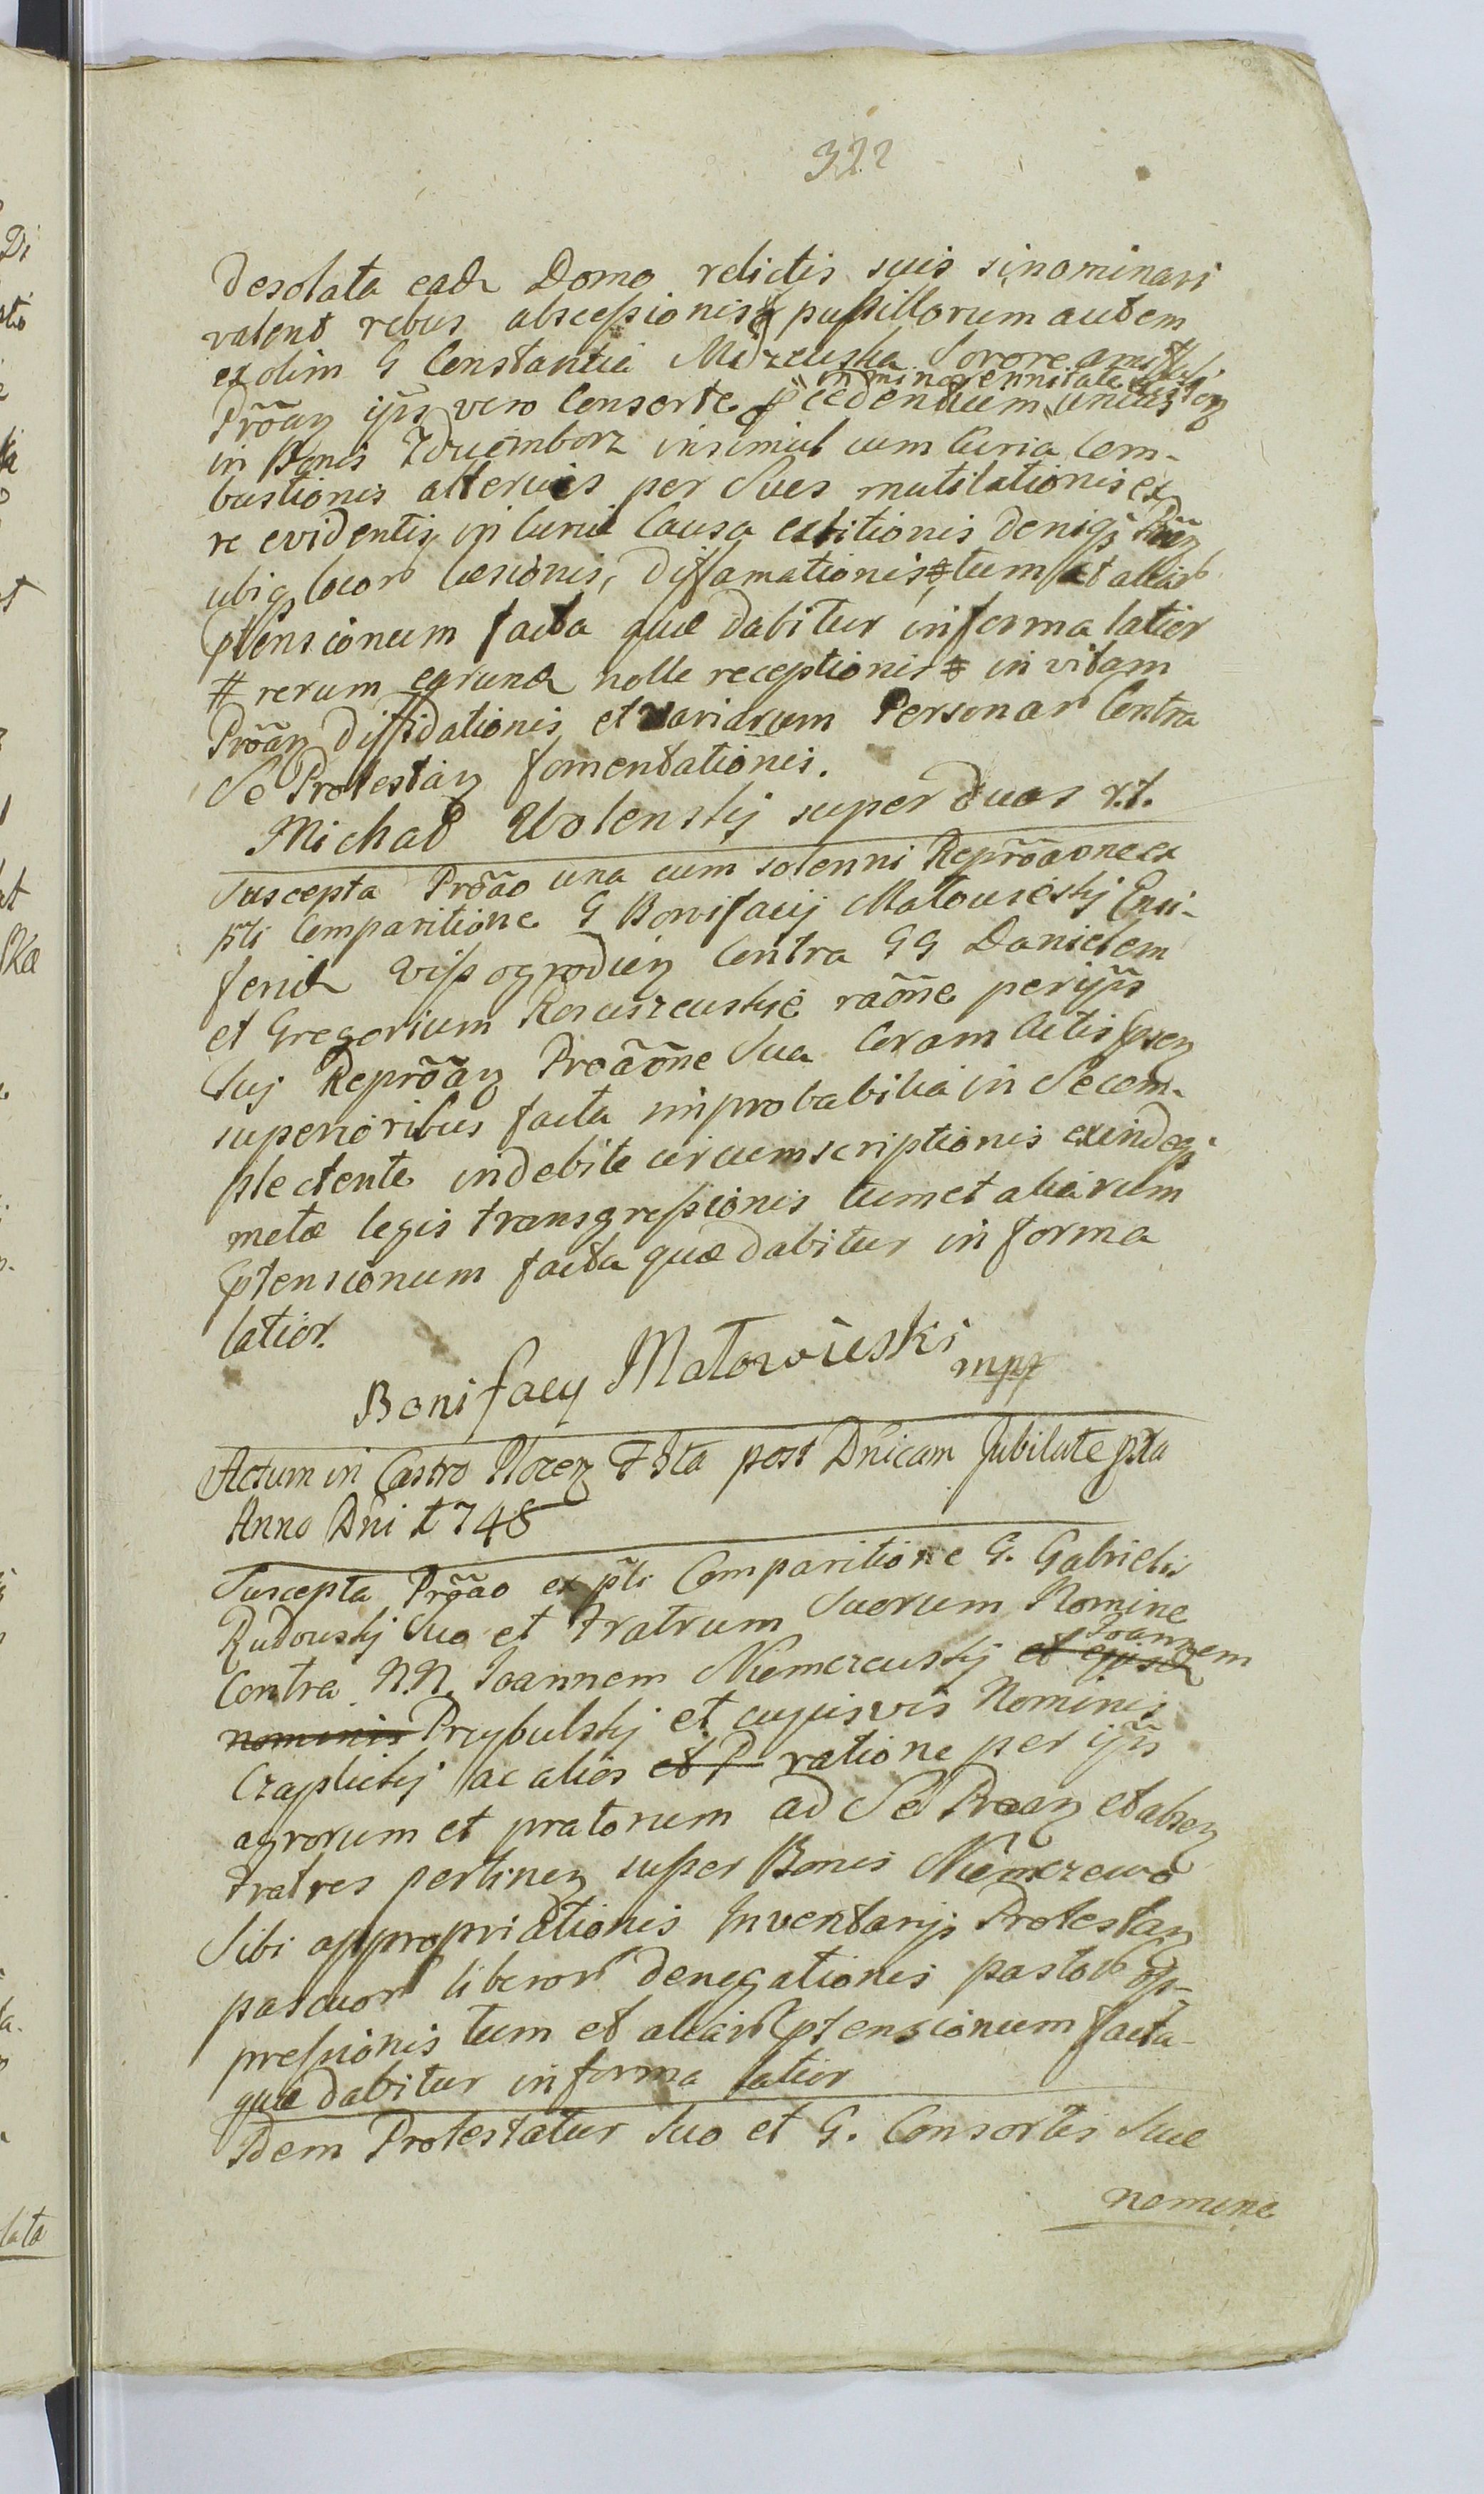 322
Desolata ead Domo relictis suis si nominari
valent rebus abscessionis pupillorum autem
ex olim G Constantia Sorore
Prõãn ijs vero Consorte in minorennitate
in Bonis insimul cum Curia Com-
bustionis alterius per Sues mutilationis ex
re evidentis in Curia Causa deniq
ubiq locor læsionis, Diffamationis, tum et aliar
ptensionum facta quæ dabitur in forma latior
# rerum earund nolle receptionis # in vitam
Prõãn Diffidationis et variarum Personar Contra
Se Protestan fomentationis.
Michał Wolenskj super duas r.t.
Suscepta Prõão una cum solenni Reprõãone ex
pti Comparitione G Bonifacij Matowieskj Ensi-
feri Contra GG Danielem
et Gregorium raõne per ijs
Suj Reprõãn Proãõne Sua Coram Actis psen
superioribus facta improbabilia in Se com-
plectente indebite circumscriptionis exindeq
metæ legis transgressionis tum et aliarum
ptensionum facta quæ dabitur in forma
latior.
Bonifacy Matowieski mpp
Actum in Castro Plocen Fria post Dnicam Jubilate pta
Anno Dni 1748
Suscepta Prõão ex pti Comparitione G. Gabrielis
Rudowskj Suo et Fratrum Suorum Nomine
Contra N.N. Joannem Niemczewskj et ejusd Joannem
nominis Przybulskj et cujusvis Nominis
Czaplickj ac alios et P ratione per ijs
agrorum et pratorum ad Se Proan et absen
Fratres pertinen super Bonis Niemczewo
Sibi appropriationis Inventarijs Protestan
pascuor liberor denegationis pastor op-
pressionis tum et aliar ptensionum facta
quæ dabitur in forma latior
Idem Protestatur Suo et G. Consortis Suæ
nomine